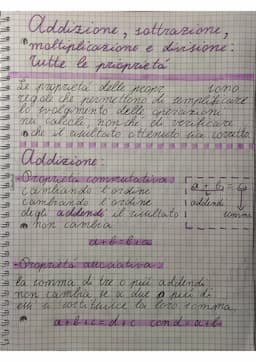 Addizione, sottrazione,
moltiplicazione e divisione:
tutte le proprietà
Le proprietà delle sono
regole che permettono di semplificare
lo svolgimento delle operazioni
nei calcoli, nonché di verificare
che il risultato ottenuto sia corretto.
Addizione:
-Proprietà commutativa:
cambiando l'ordine
cambiando l'ordine
degli addendi il risultato
non cambia
a+b=b+a
a + b = c
addendi
somma
-Proprietà associativa:
la somma di tre o più addendi
non cambia se a due o più di
essi si sostituisce la loro somma.
a+b+c=d+c con d=a+b